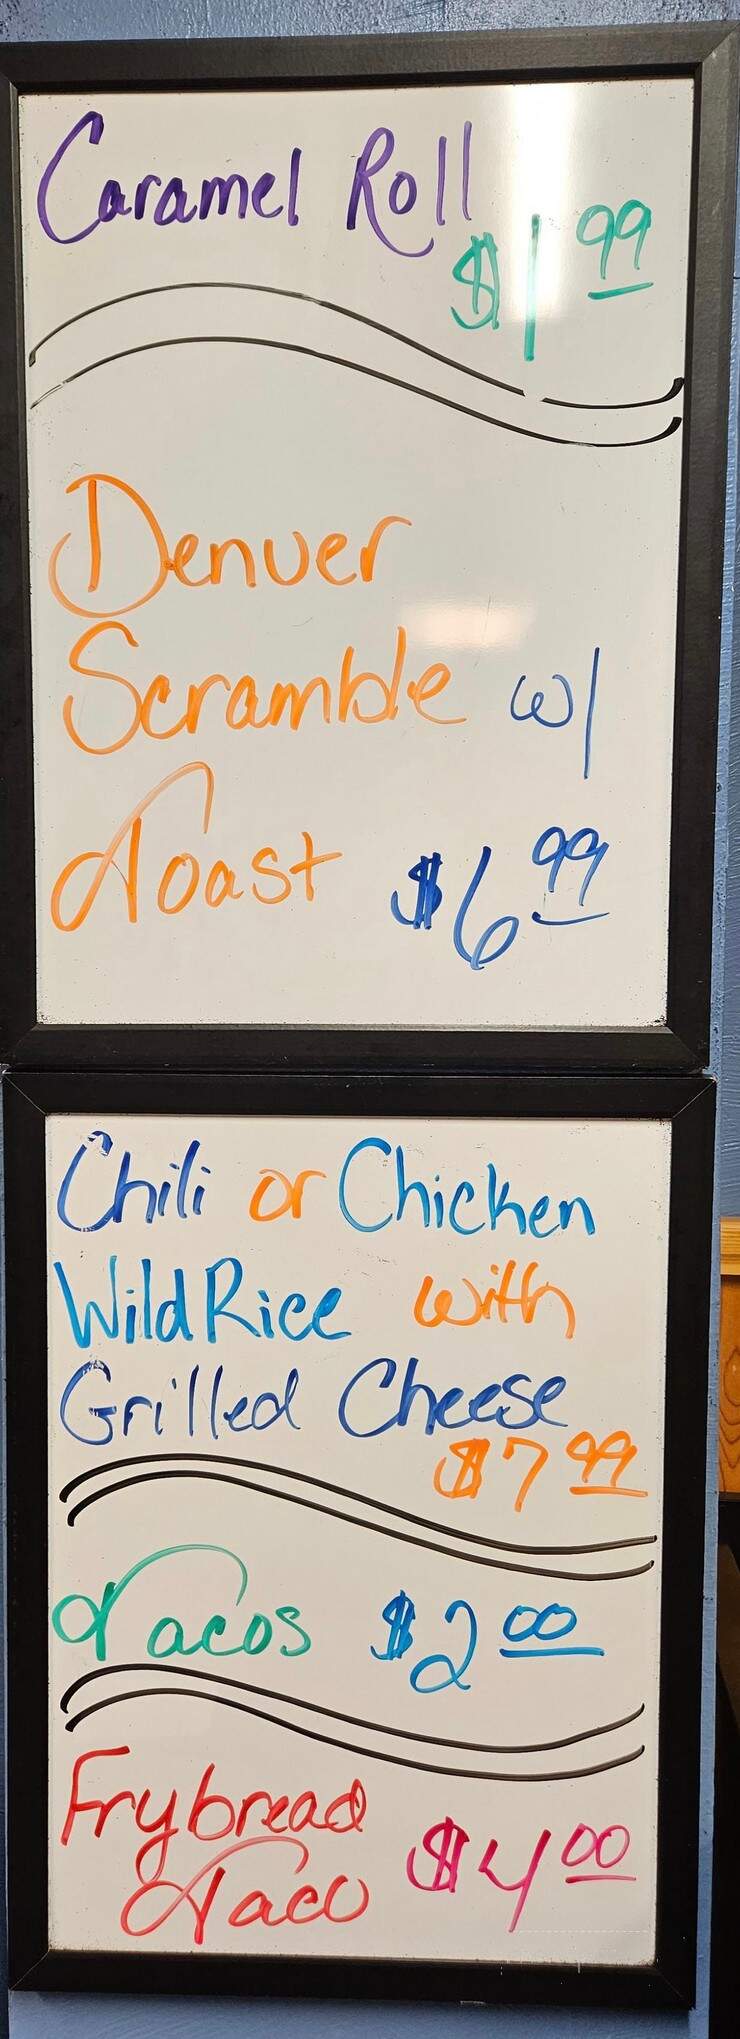 Caramel Roll
$1.99
Denver
Scramble w/
Toast $6.99
Chili or Chicken
Wild Rice with
Grilled Cheese
$7.99
Tacos $2.00
Frybread
Taco $4.00